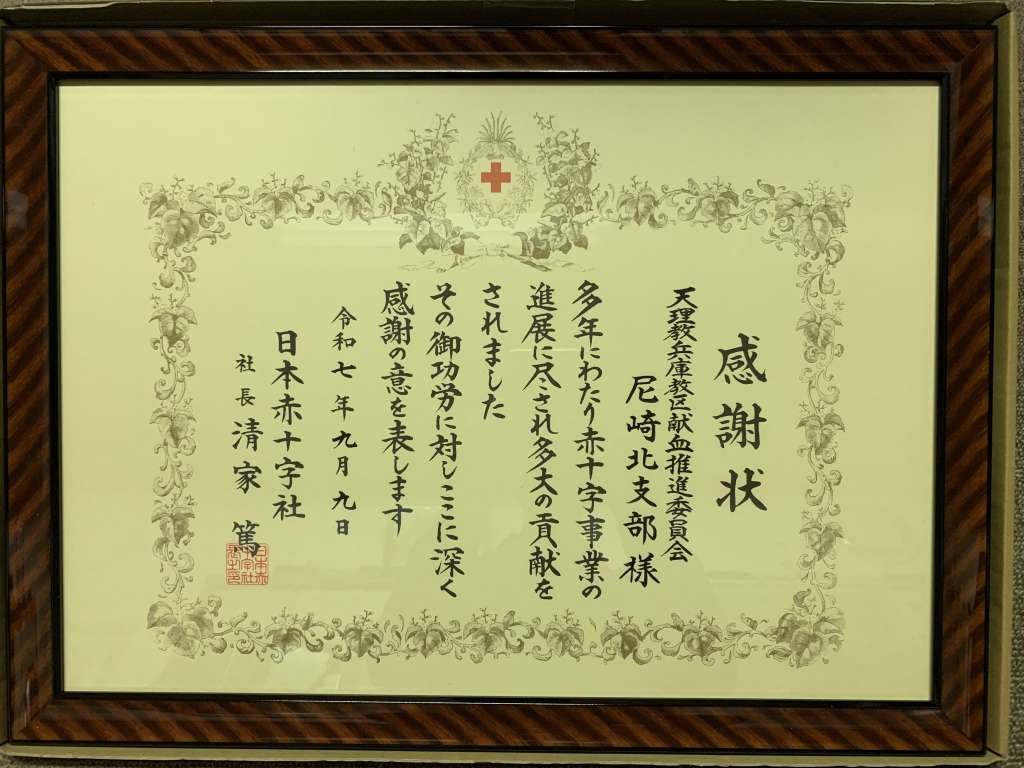 感謝状
天理教兵庫教区献血推進委員会
尼崎北支部様
多年にわたり赤十字事業の
進展に尽され多大の貢献を
されました
その御功労に対しここに深く
感謝の意を表します
令和七年九月九日
日本赤十字社
社長 清家 篤
日本赤
十字社
長之印